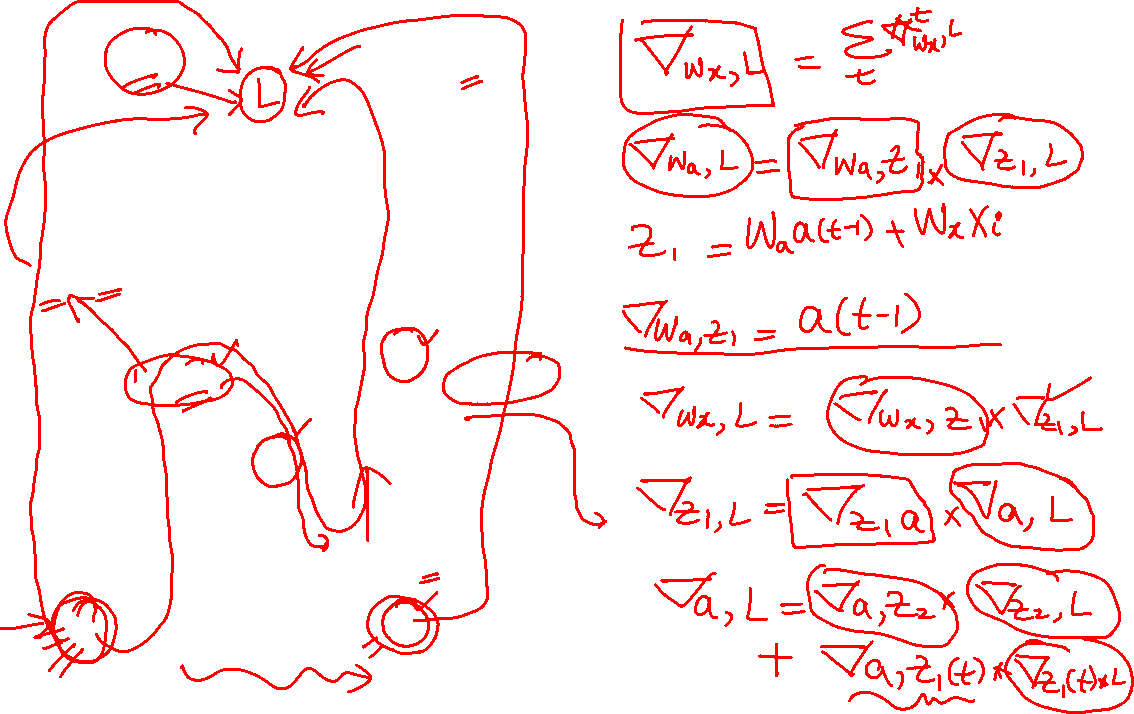 L
∇wx,L = Σt ∇^t wx,L
∇wa,L = ∇wa,z1 × ∇z1,L
z1 = Wa a(t-1) + Wx Xi
∇wa,z1 = a(t-1)
∇wx,L = ∇wx,z1 × ∇z1,L
∇z1,L = ∇z1 a × ∇a,L
∇a,L = ∇a,z2 × ∇z2,L
+ ∇a,z1(t) × ∇z1(t)×L